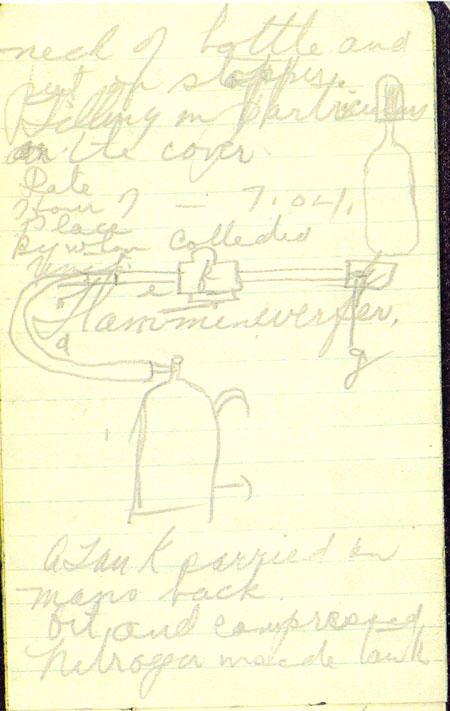 neck of bottle and
put on stopper.
Filling in particulars
on the cover
Date
Hour of
Place
By whom collected
e
Flammenwerfer.
a
g
A Tank carried on
mans back.
Oil and compressed
Nitrogen inside tank